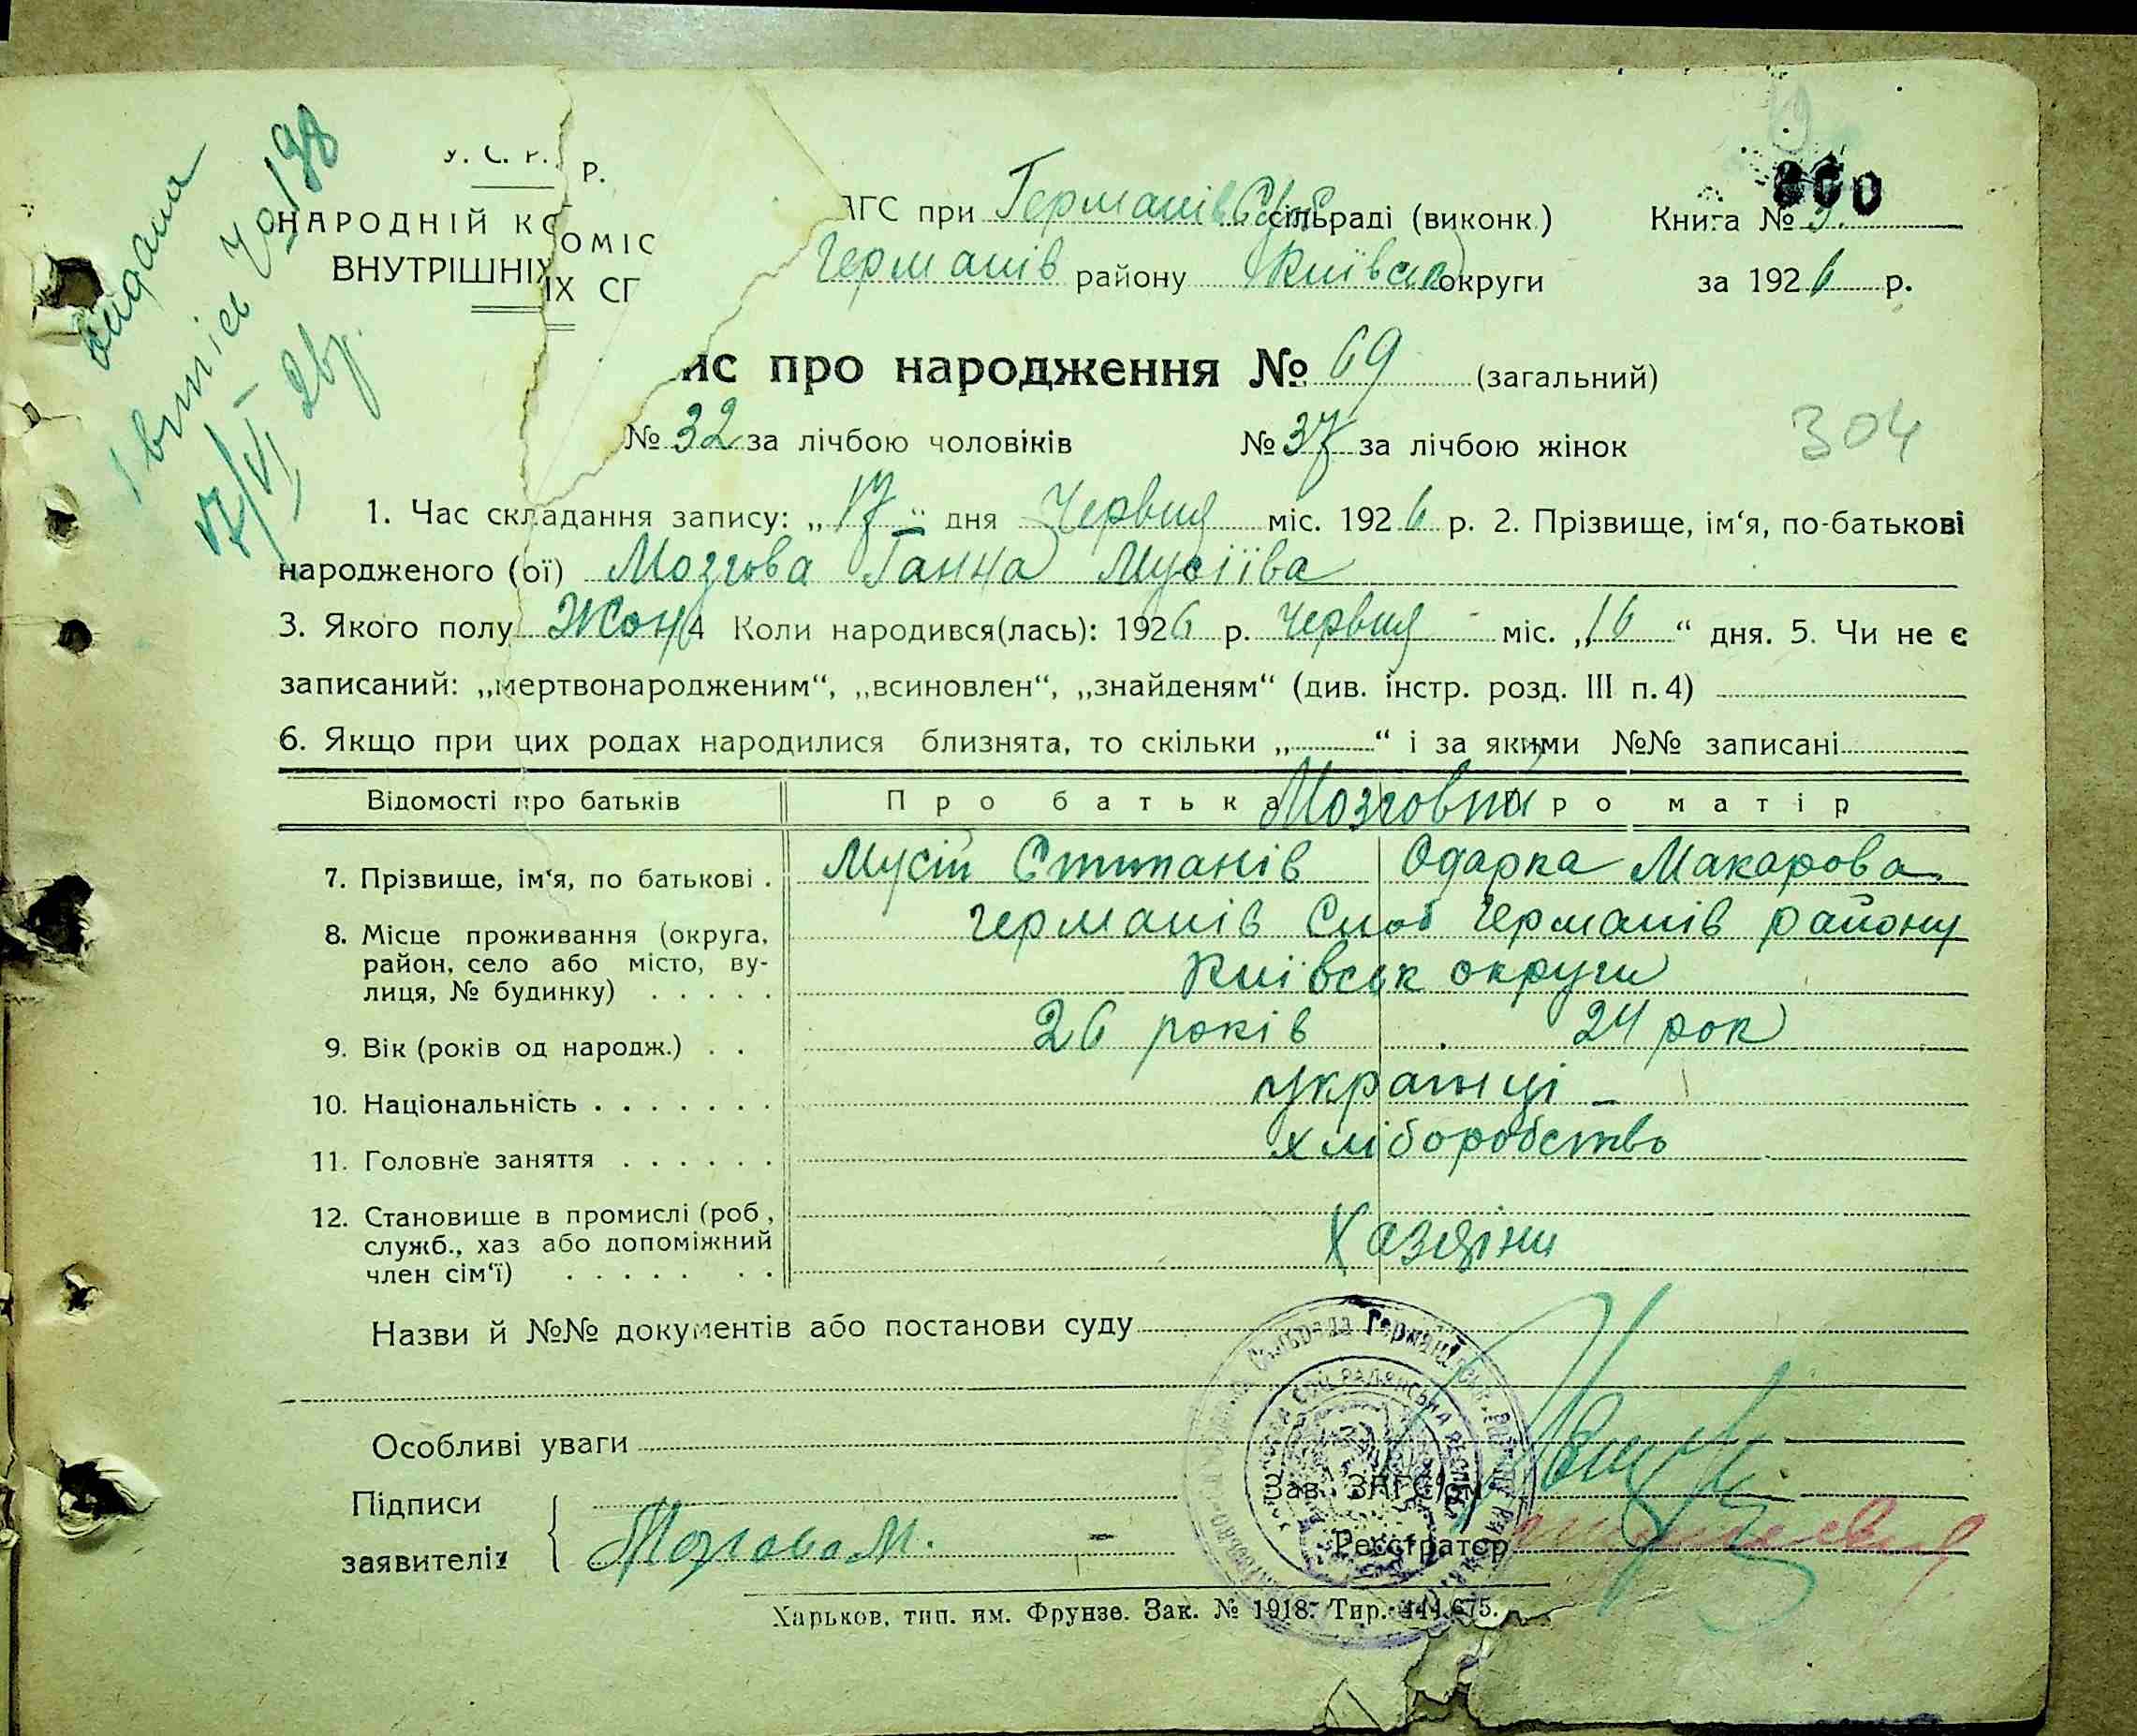 видана
1 витпіс 70/98
17/VI 26р.
У. С. Р. Р.
НАРОДНІЙ КОМІС
ВНУТРІШНІХ СГ
АГС при Германів Слоб сільраді (виконк.)
Германів району Київськ округи
Книга № 3.
300
за 1926 р.
ис про народження № 69 (загальний)
№ 32 за лічбою чоловіків № 37 за лічбою жінок
304
1. Час складання запису: „17“ дня Червня міс. 1926 р. 2. Прізвище, ім‘я, по-батькові
народженого (ої) Мозгова Ганна Мусіїва
3. Якого полу Жон 4 Коли народився(лась): 1926 р. Червня міс. „16“ дня. 5. Чи не є
записаний: „мертвонародженим“, „всиновлен“, „знайденям“ (див. інстр. розд. III п. 4)
6. Якщо при цих родах народилися близнята, то скільки „ “ і за якими №№ записані
Відомості про батьків Про батька Про матір
Мозгові
7. Прізвище, ім‘я, по батькові . Мусій Степанів Одарка Макарова
8. Місце проживання (округа, Германів Слоб Германів району
район, село або місто, ву-
лиця, № будинку) . . . . . Київськ округи
9. Вік (років од народж.) . . 26 років 24 рок
10. Національність . . . . . . . українці
11. Головне заняття . . . . . . хліборобство
12. Становище в промислі (роб,
служб., хаз або допоміжний Хазяїни
член сім‘ї) . . . . . . .
Назви й №№ документів або постанови суду
Особливі уваги
Підписи
заявителів Мозгова М.
Зав. ЗАГС‘ом
Реєстратор
Харьков, тип. им. Фрунзе. Зак. № 1918. Тир. 444.675.